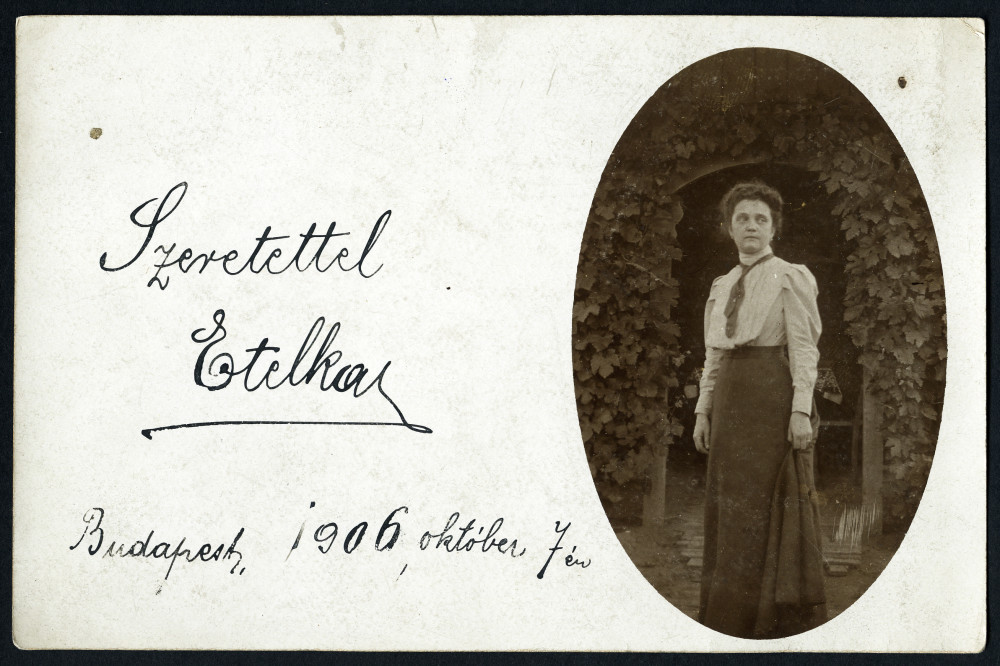 Szeretettel
Etelka
Budapest, 1906, október 7én